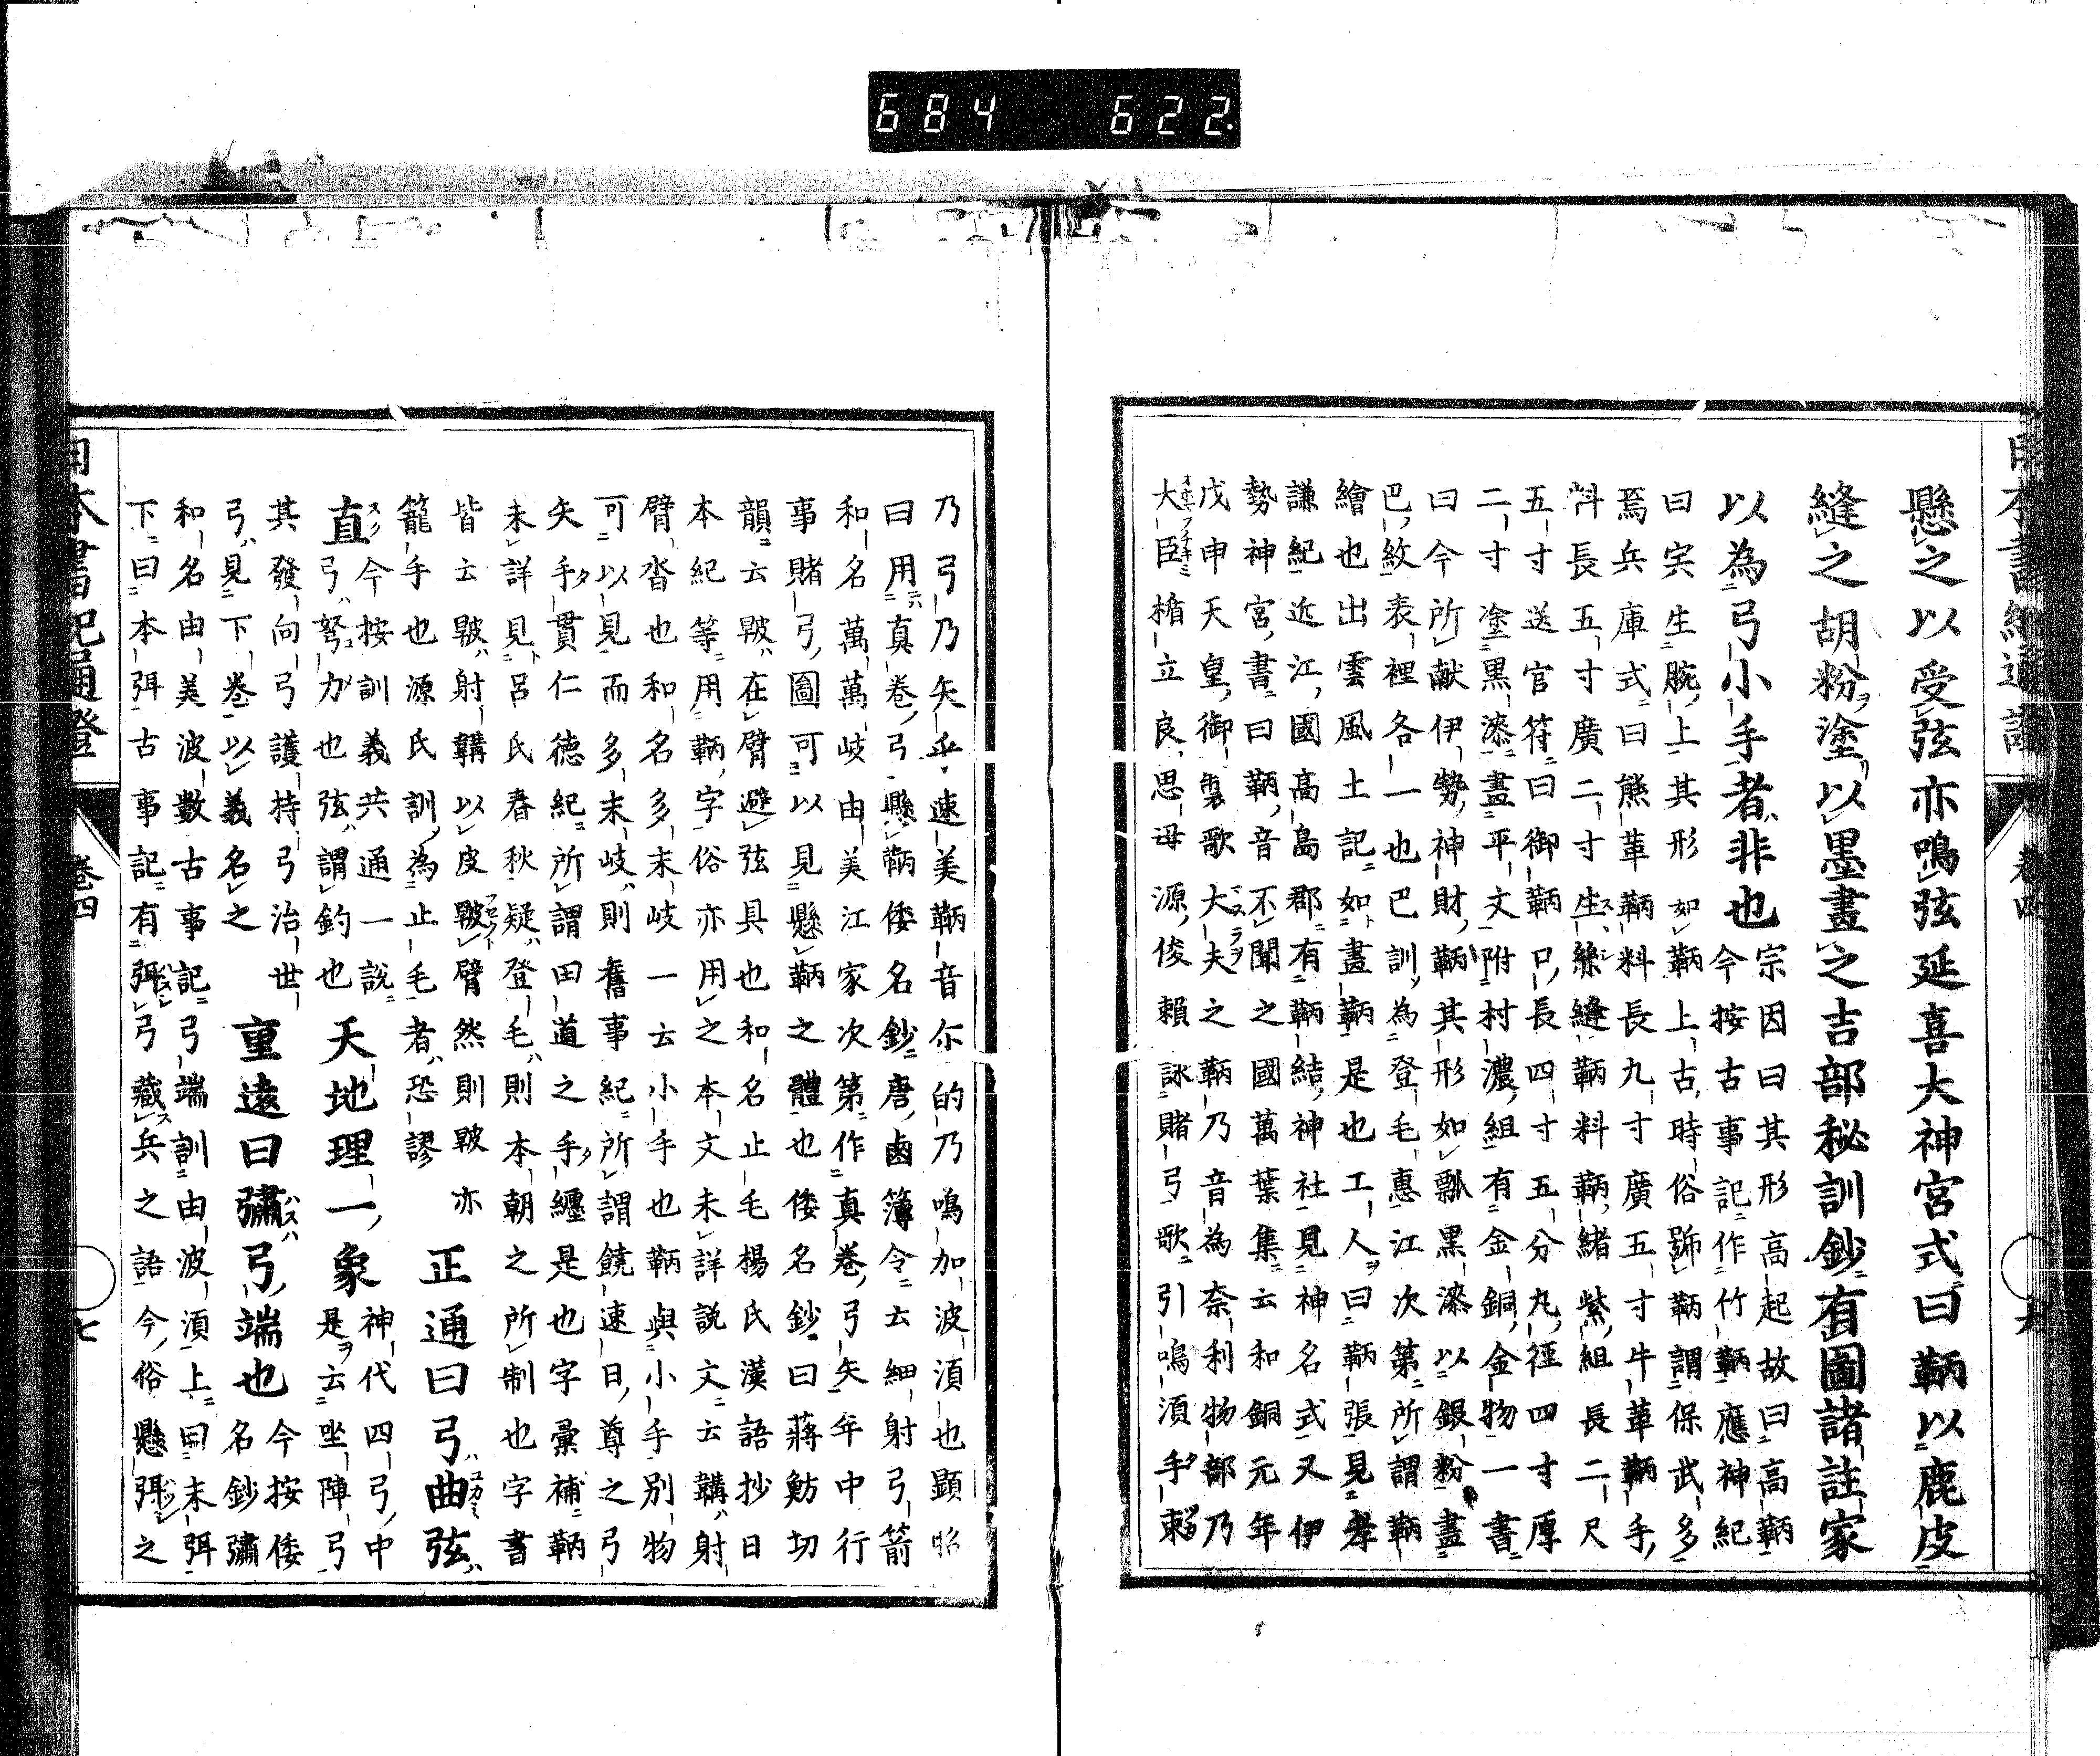 684 622
懸之以受弦亦鳴弦延喜大神宮式曰鞆以鹿皮
縫之胡粉塗以墨畫之吉部秘訓鈔有圖諸註家
以為弓小手者非也
宗因曰其形高起故曰高鞆
今按古事記作竹鞆應神紀
曰宍生腕上其形如鞆上古時俗號鞆謂保武多
焉兵庫式曰熊革鞆料長九寸廣五寸牛革鞆手
料長五寸廣二寸生絲縫鞆料鞆緒紫組長二尺
五寸送官符曰御鞆口長四寸五分丸徑四寸厚
二寸塗黑漆畫平文附村濃組有金銅金物一書
曰今所献伊勢神財鞆其形如瓢黑漆以銀粉畫
巴紋表裡各一也巴訓為登毛惠江次第所謂鞆
繪也出雲風土記如畫鞆是也工人曰鞆張見孝
謙紀近江國高島郡有鞆結神社見神名式又伊
勢神宮書曰鞆音不聞之國萬葉集云和銅元年
戊申天皇御製歌大夫之鞆乃音為奈利物部乃
大臣楯立良思母源俊賴詠賭弓歌引鳴須手
乃弓乃矢乎速美鞆音尓的乃鳴加波須也顯昭
曰用真卷弓懸鞆倭名鈔唐鹵簿令云細射弓箭
和名萬萬岐由美江家次第作真卷弓矢年中行
事賭弓圖可以見懸鞆之體也倭名鈔曰蔣魴切
韻云䩠在臂避弦具也和名止毛楊氏漢語抄日
本紀等用鞆字俗亦用之本文未詳說文云韝射
臂沓也和名多末岐一云小手也鞆與小手別物
可以見而多末岐則舊事紀所謂饒速日尊之弓
矢手貫仁德紀所謂田道之手纏是也字彙補鞆
未詳見呂氏春秋疑登毛則本朝之所制也字書
皆云䩠射韝以皮䩠臂然則䩠亦
籠手也源氏訓為止毛者恐謬
正通曰弓曲弦
直
今按訓義共通一說
弓弩力也弦謂釣也
天地理一象
神代四弓中
是云坐陣弓
其發向弓護持弓治世
弓見下卷以義名之
重遠曰彇弓端也
今按倭
名鈔彇
和名由美波數古事記弓端訓由波須上曰末弭
下曰本弭古事記有弭弓藏兵之語今俗懸弭之
卷四
七